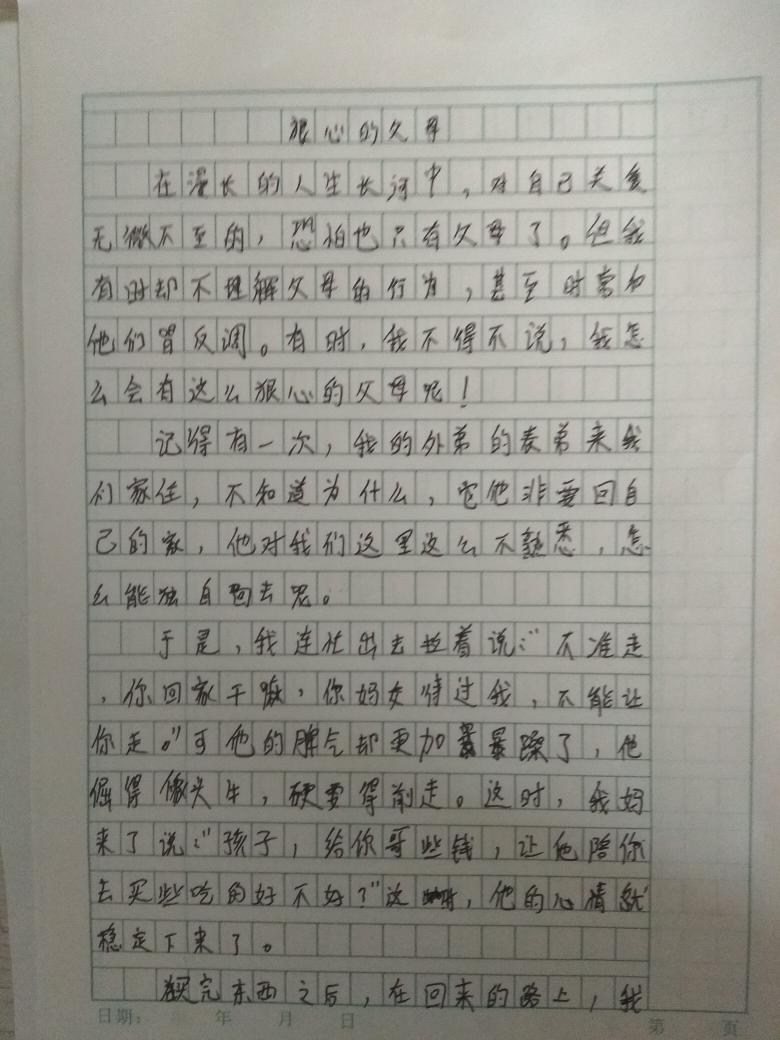 狠心的父母
在漫长的人生长河中，对自己关爱
无微不至的，恐怕也只有父母了。但我
有时却不理解父母的行为，甚至时常和
他们冒反调。有时，我不得不说，我怎
么会有这么狠心的父母呢！
记得有一次，我的外弟的表弟来我
们家住，不知道为什么，它他非要回自
己的家，他对我们这里这么不熟悉，怎
么能独自回去呢。
于是，我连忙出去拉着说：“不准走
，你回家干嘛，你妈交待过我，不能让
你走。”可他的脾气却更加暴躁了，他
倔得像头牛，硬要得前走。这时，我妈
来了说：“孩子，给你哥些钱，让他陪你
去买些吃的好不好？”这时，他的心情就
稳定下来了。
买完东西之后，在回来的路上，我
日期： 年 月 日 第 页